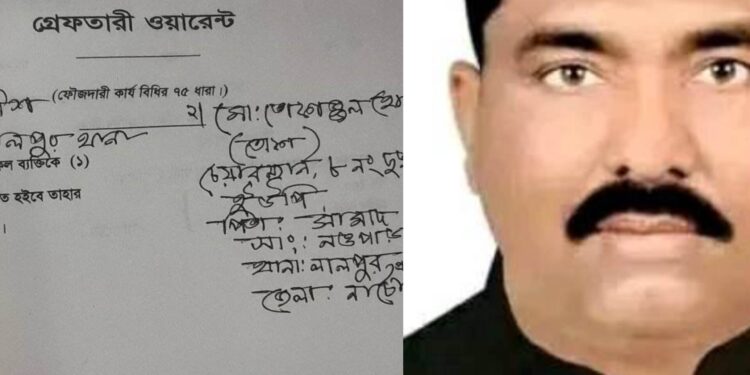 গ্রেফতারী ওয়ারেন্ট
(ফৌজদারী কার্য বিধির ৭৫ ধারা।)
২। মো: তোফাজ্জল
লপুর থানা
(তোফা)
ল ব্যক্তিকে (১)
চেয়ারম্যান, ৮ নং
ইউপি
ত হইবে তাহার
পিতা:
সাং: নওপাড়া
থানা: লালপুর
জেলা: